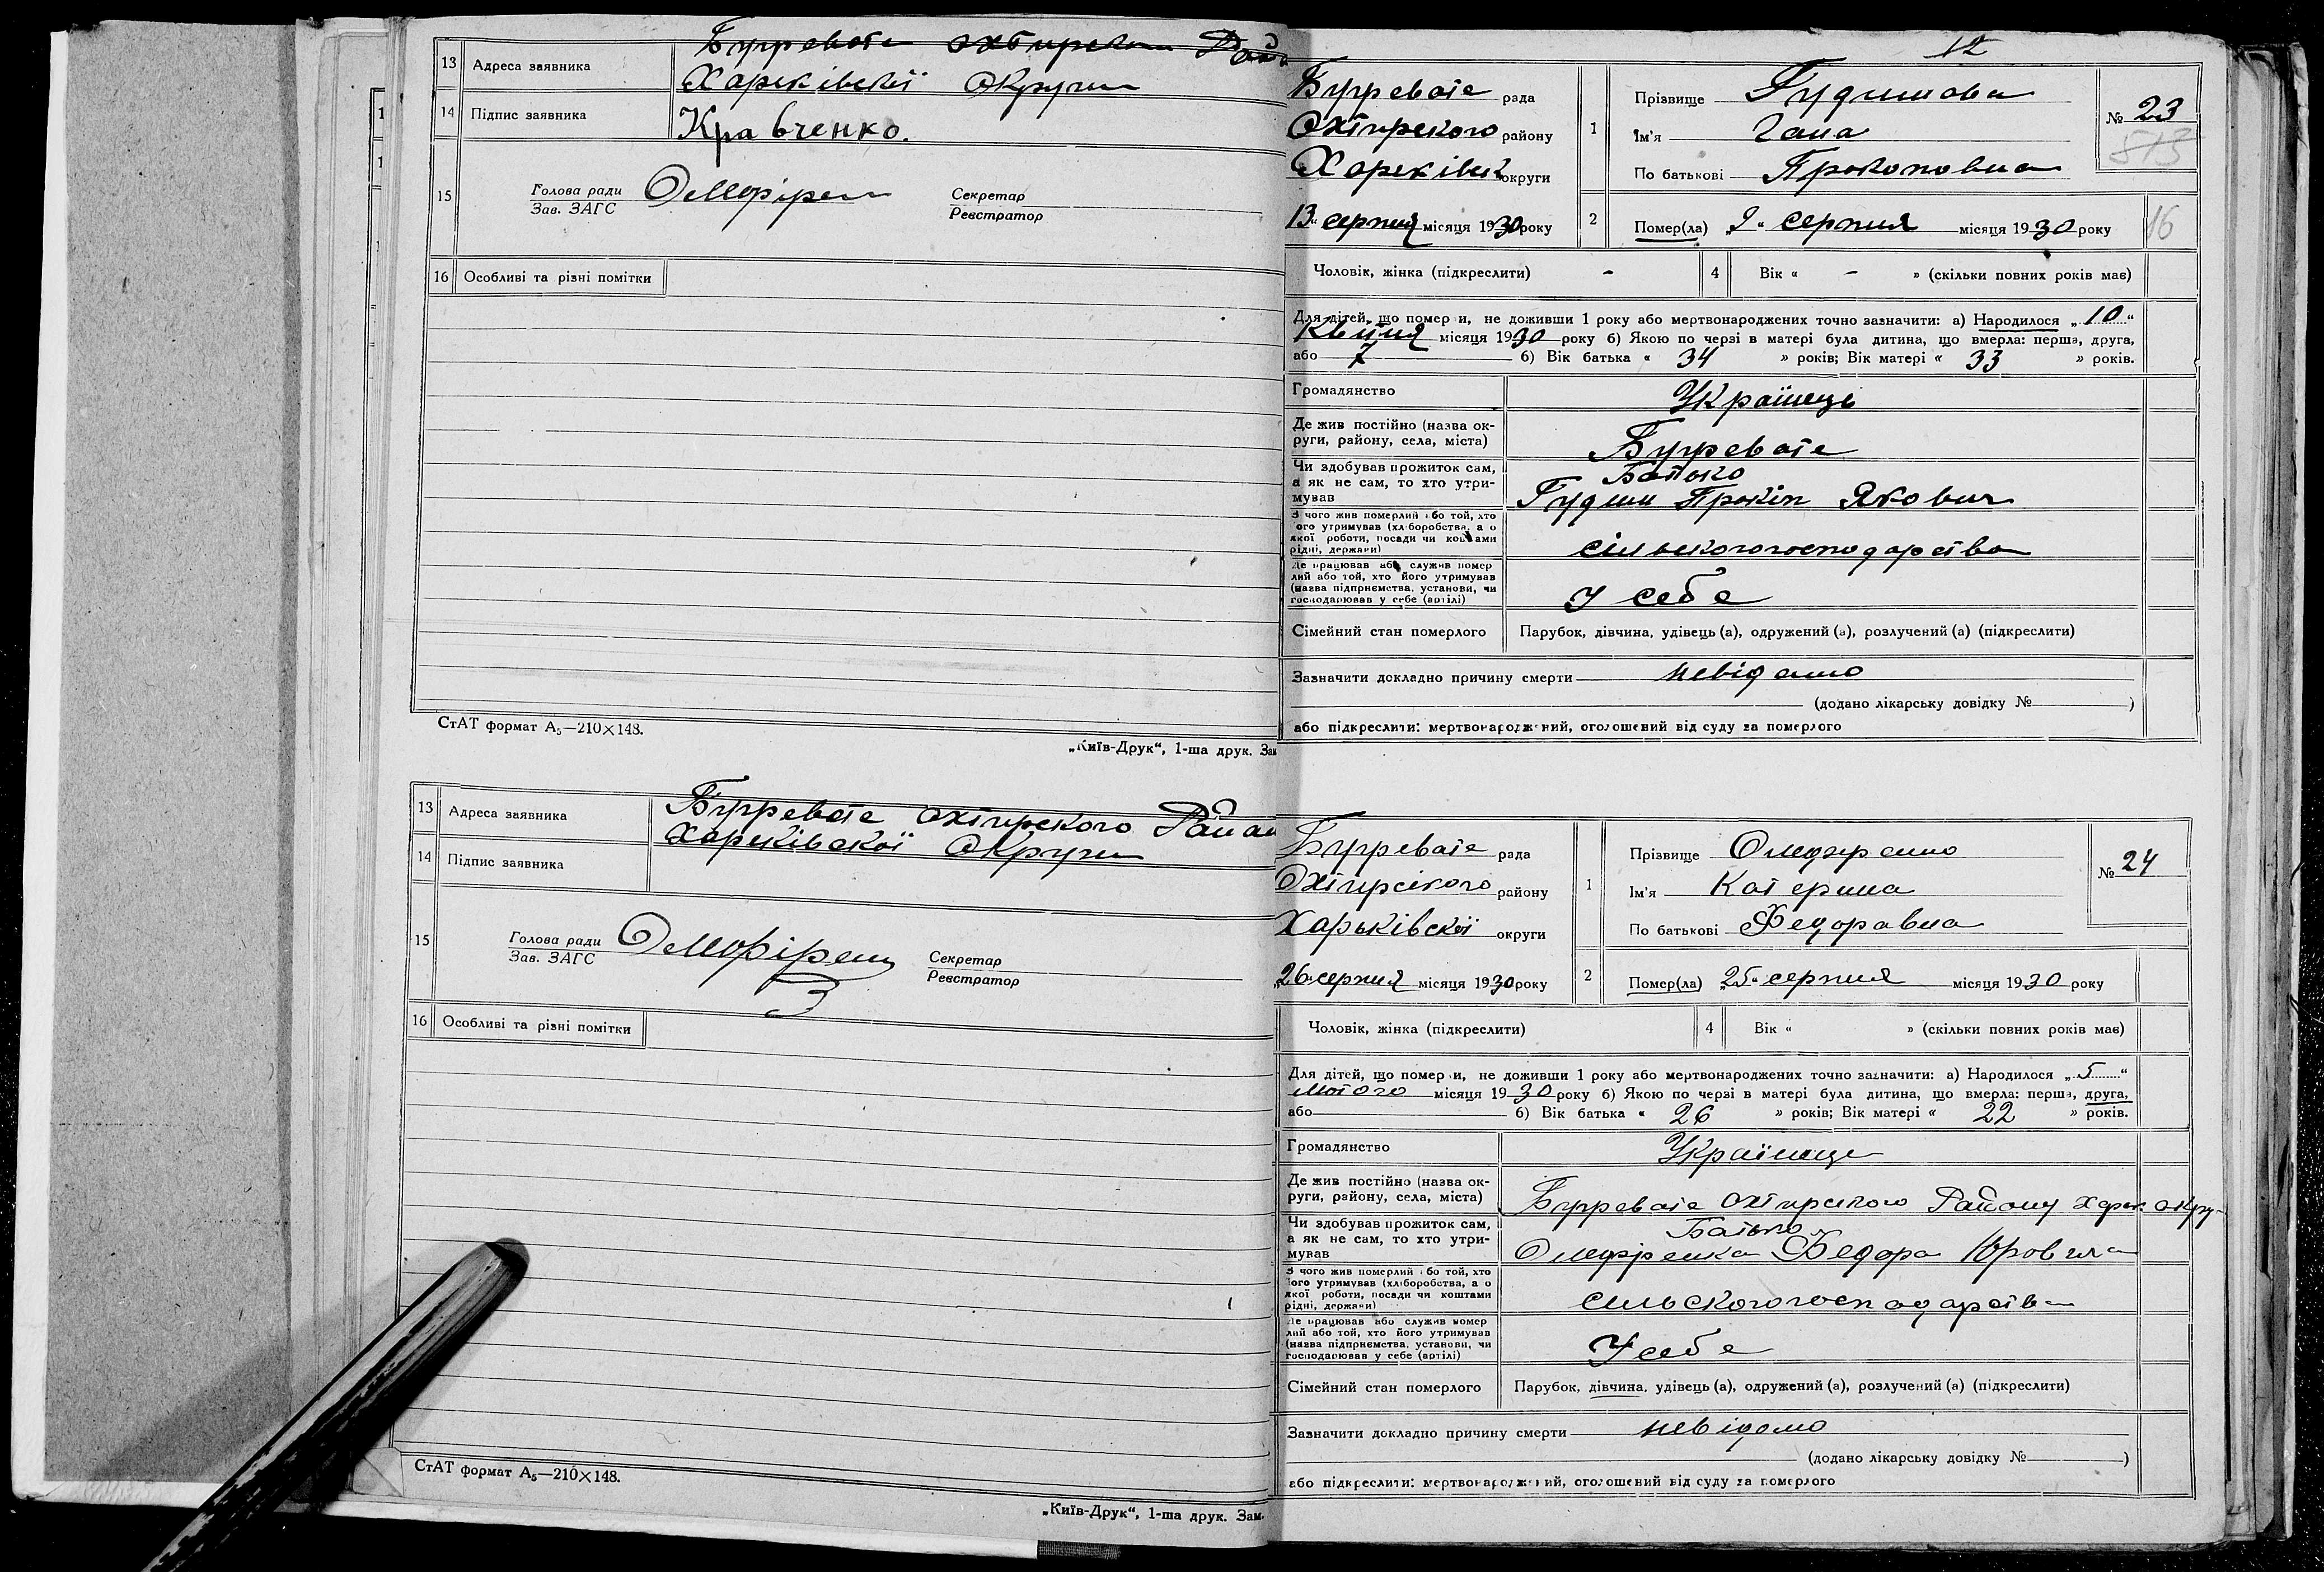 13 Адреса заявника
Харківскої Округи
14 Підпис заявника Кравченко.
15 Голова ради
Зав. ЗАГС
Секретар
Реєстратор
16 Особливі та різні помітки
СтАТ формат А₅—210×148.
„Київ-Друк“, 1-ша друк. Зам
13 Адреса заявника Бугревате охтирского
Харківскої Округи
14 Підпис заявника
15 Голова ради
Зав. ЗАГС
Секретар
Реєстратор
16 Особливі та різні помітки
СтАТ формат А₅—210×148.
„Київ-Друк“, 1-ша друк. Зам.
12
Бугревате рада
Охтирского району
округи
„13“ серпня місяця 1930 року
1 Прізвище
Ім'я
По батькові Прокоповна
№ 23
513
2 Помер(ла) серпня місяця 1930 року
16
Чоловік, жінка (підкреслити) -
4 Вік « - » (скільки повних років має)
Для дітей, що померли, не доживши 1 року або мертвонароджених точно зазначити: а) Народилося „10“
Квітня місяця 1930 року б) Якою по черзі в матері була дитина, що вмерла: перша, друга,
або 7 б) Вік батька « 34 » років; Вік матері « 33 » років.
Громадянство Українець
Де жив постійно (назва ок-
руги, району, села, міста) Бугревате
Чи здобував прожиток сам,
а як не сам, то хто утри-
мував
Батько
Прокіп Якович
З чого жив померлий або той, хто
його утримував (хліборобства, а о
якої роботи, посади чи коштами
рідні, держави)
сільскогогосподарства
Де працював або служив помер
лий або той, хто його утримував
(назва підприємства, установи, чи
господарював у себе (артілі)
У себе
Сімейний стан померлого Парубок, дівчина, удівець (а), одружений (а), розлучений (а) (підкреслити)
Зазначити докладно причину смерти невідомо
(додано лікарську довідку № )
або підкреслити: мертвонароджений, оголошений від суду за померлого
Бугревате рада
Охтирсікого району
Харьківскої округи
„26“ серпня місяця 1930 року
1 Прізвище
Ім'я Катерина
По батькові Федоравна
№ 24
2 Помер(ла) „25“ серпня місяця 1930 року
Чоловік, жінка (підкреслити)
4 Вік « » (скільки повних років має)
Для дітей, що померли, не доживши 1 року або мертвонароджених точно зазначити: а) Народилося „5“
лютого місяця 1930 року б) Якою по черзі в матері була дитина, що вмерла: перша, друга,
або б) Вік батька « 26 » років; Вік матері « 22 » років.
Громадянство Українець
Де жив постійно (назва ок-
руги, району, села, міста) Бугревате Охтирского Району Харк окру-
Чи здобував прожиток сам,
а як не сам, то хто утри-
мував
Батько
Федора
З чого жив померлий або той, хто
його утримував (хліборобства, а о
якої роботи, посади чи коштами
рідні, держави)
сильскогогосподарства
Де працював або служив помер
лий або той, хто його утримував
(назва підприємства, установи, чи
господарював у себе (артілі)
У себе
Сімейний стан померлого Парубок, дівчина, удівець (а), одружений (а), розлучений (а) (підкреслити)
Зазначити докладно причину смерти невідомо
(додано лікарську довідку № )
або підкреслити: мертвонароджений, оголошений від суду за померлого